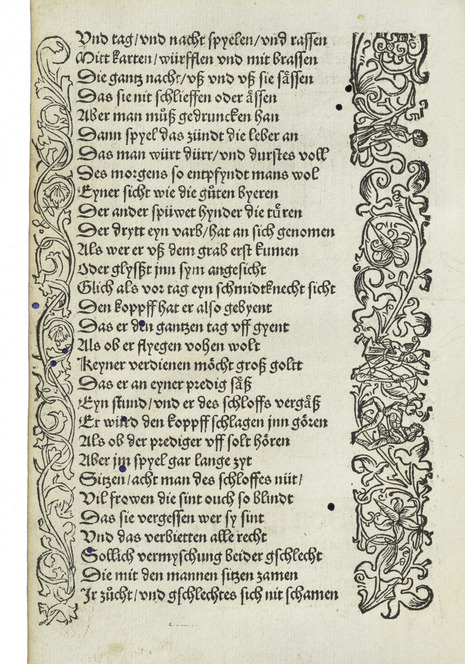 Vnd tag/vnd nacht spyelen/vnd rassen
Mitt karten/würfflen vnd mit brassen
Die gantz nacht/vß vnd vß sie sässen
Das sie nit schlieffen oder ässen
Aber man můß gedruncken han
Dann spyel das zündt die leber an
Das man würt dürr/vnd durstes voll
Des morgens so entpfyndt mans wol
Eyner sicht wie die gůten byeren
Der ander spüwet hynder die tůren
Der drytt eyn varb/hat an sich genomen
Als wer er vß dem grab erst kumen
Oder glysszt jnn sym angesicht
Glich als vor tag eyn schmidtknecht sicht
Den koppff hat er also gebyent
Das er den gantzen tag vff gyent
Als ob er flyegen vohen wolt
Keyner verdienen möcht groß goltt
Das er an eyner predig säß
Eyn stund/vnd er des schloffs vergäß
Er würd den koppff schlagen jnn gören
Als ob der prediger vff solt hören
Aber jm spyel gar lange zyt
Sitzen/acht man des schloffes nüt/
Vil frowen die sint ouch so blindt
Das sie vergessen wer sy sint
Vnd das verbietten alle recht
Sollich vermyschung beider gschlecht
Die mit den mannen sitzen zamen
Ir zůcht/vnd gschlechtes sich nit schamen